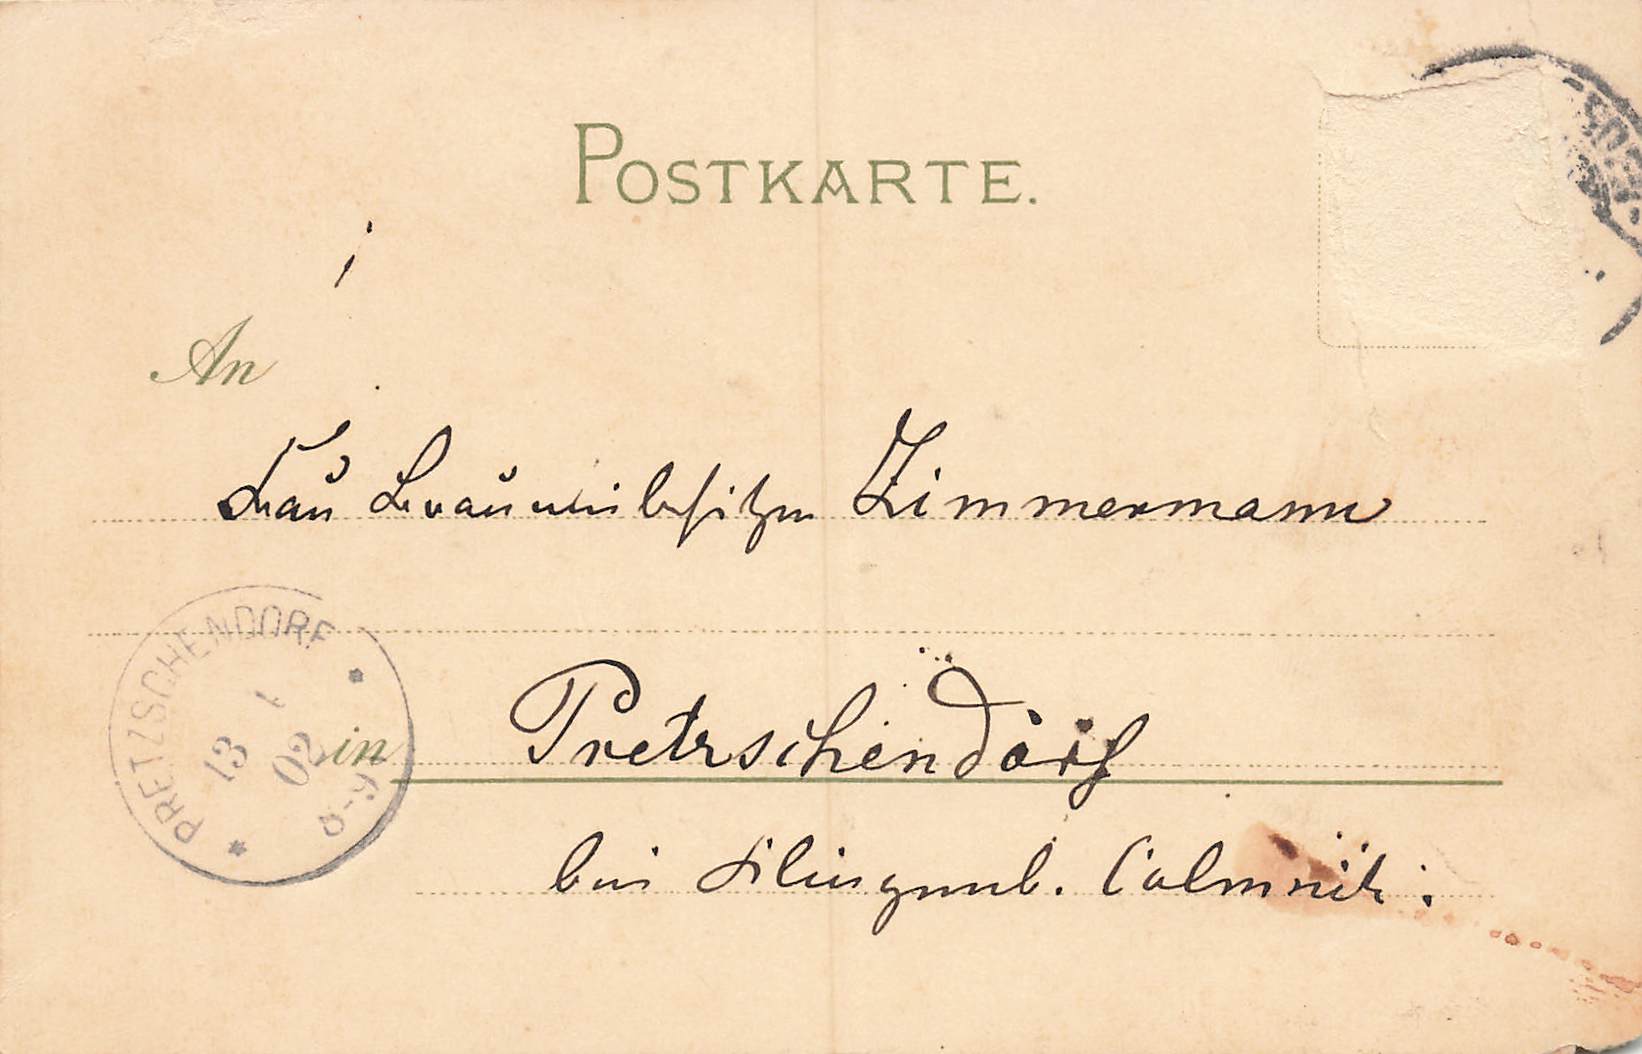 POSTKARTE.
An
Frau Brauereibesitzer Zimmermann
PRETZSCHENDORF
13
02
8-9
in Pretzschendorf
bei Klingenb. Colmnitz.